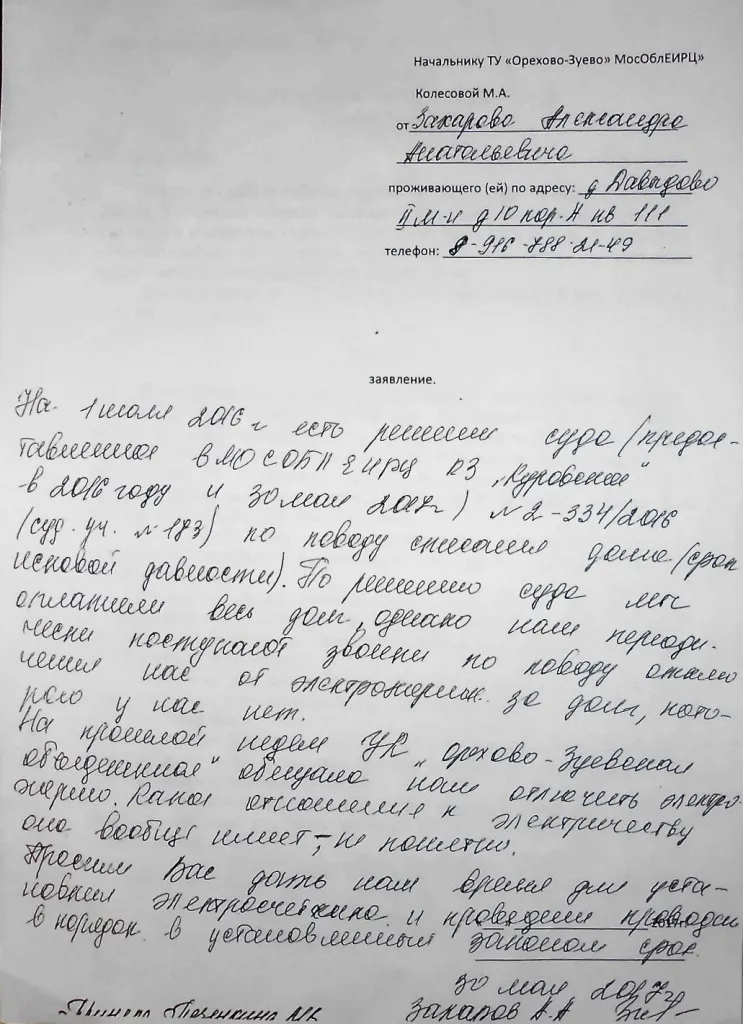 Начальнику ТУ «Орехово-Зуево» МосОблЕИРЦ»
Колесовой М.А.
от Захарова Александра
Анатольевича
проживающего (ей) по адресу: д Давыдово
II м-н д 10 кор. А кв 111
телефон: 8-916-788-21-49
заявление.
На 1 июля 2016 г есть решение суда (предос-
тавленное в МОСОБЛЕИРЦ КЗ „Куровское"
в 2016 году и 30 мая 2017г) №2-334/2016
(суд. уч. №173) по поводу списания долга (срок
исковой давности). По решению суда мы
оплатили весь долг, однако нам периоди-
чески поступают звонки по поводу отклю
чения нас от электроэнергии за долг, кото-
рого у нас нет.
На прошлой неделе УК „Орехово-Зуевская
объединенная" обещала нам отлючить электро-
энергию. Какое отношение к электричеству
она вообще имеет, - не понятно.
Просим Вас дать нам время для уста-
новки электросчетчика и проведения проводки
в порядок в установленный законом срок.
30 мая 2017г
Захаров А.А